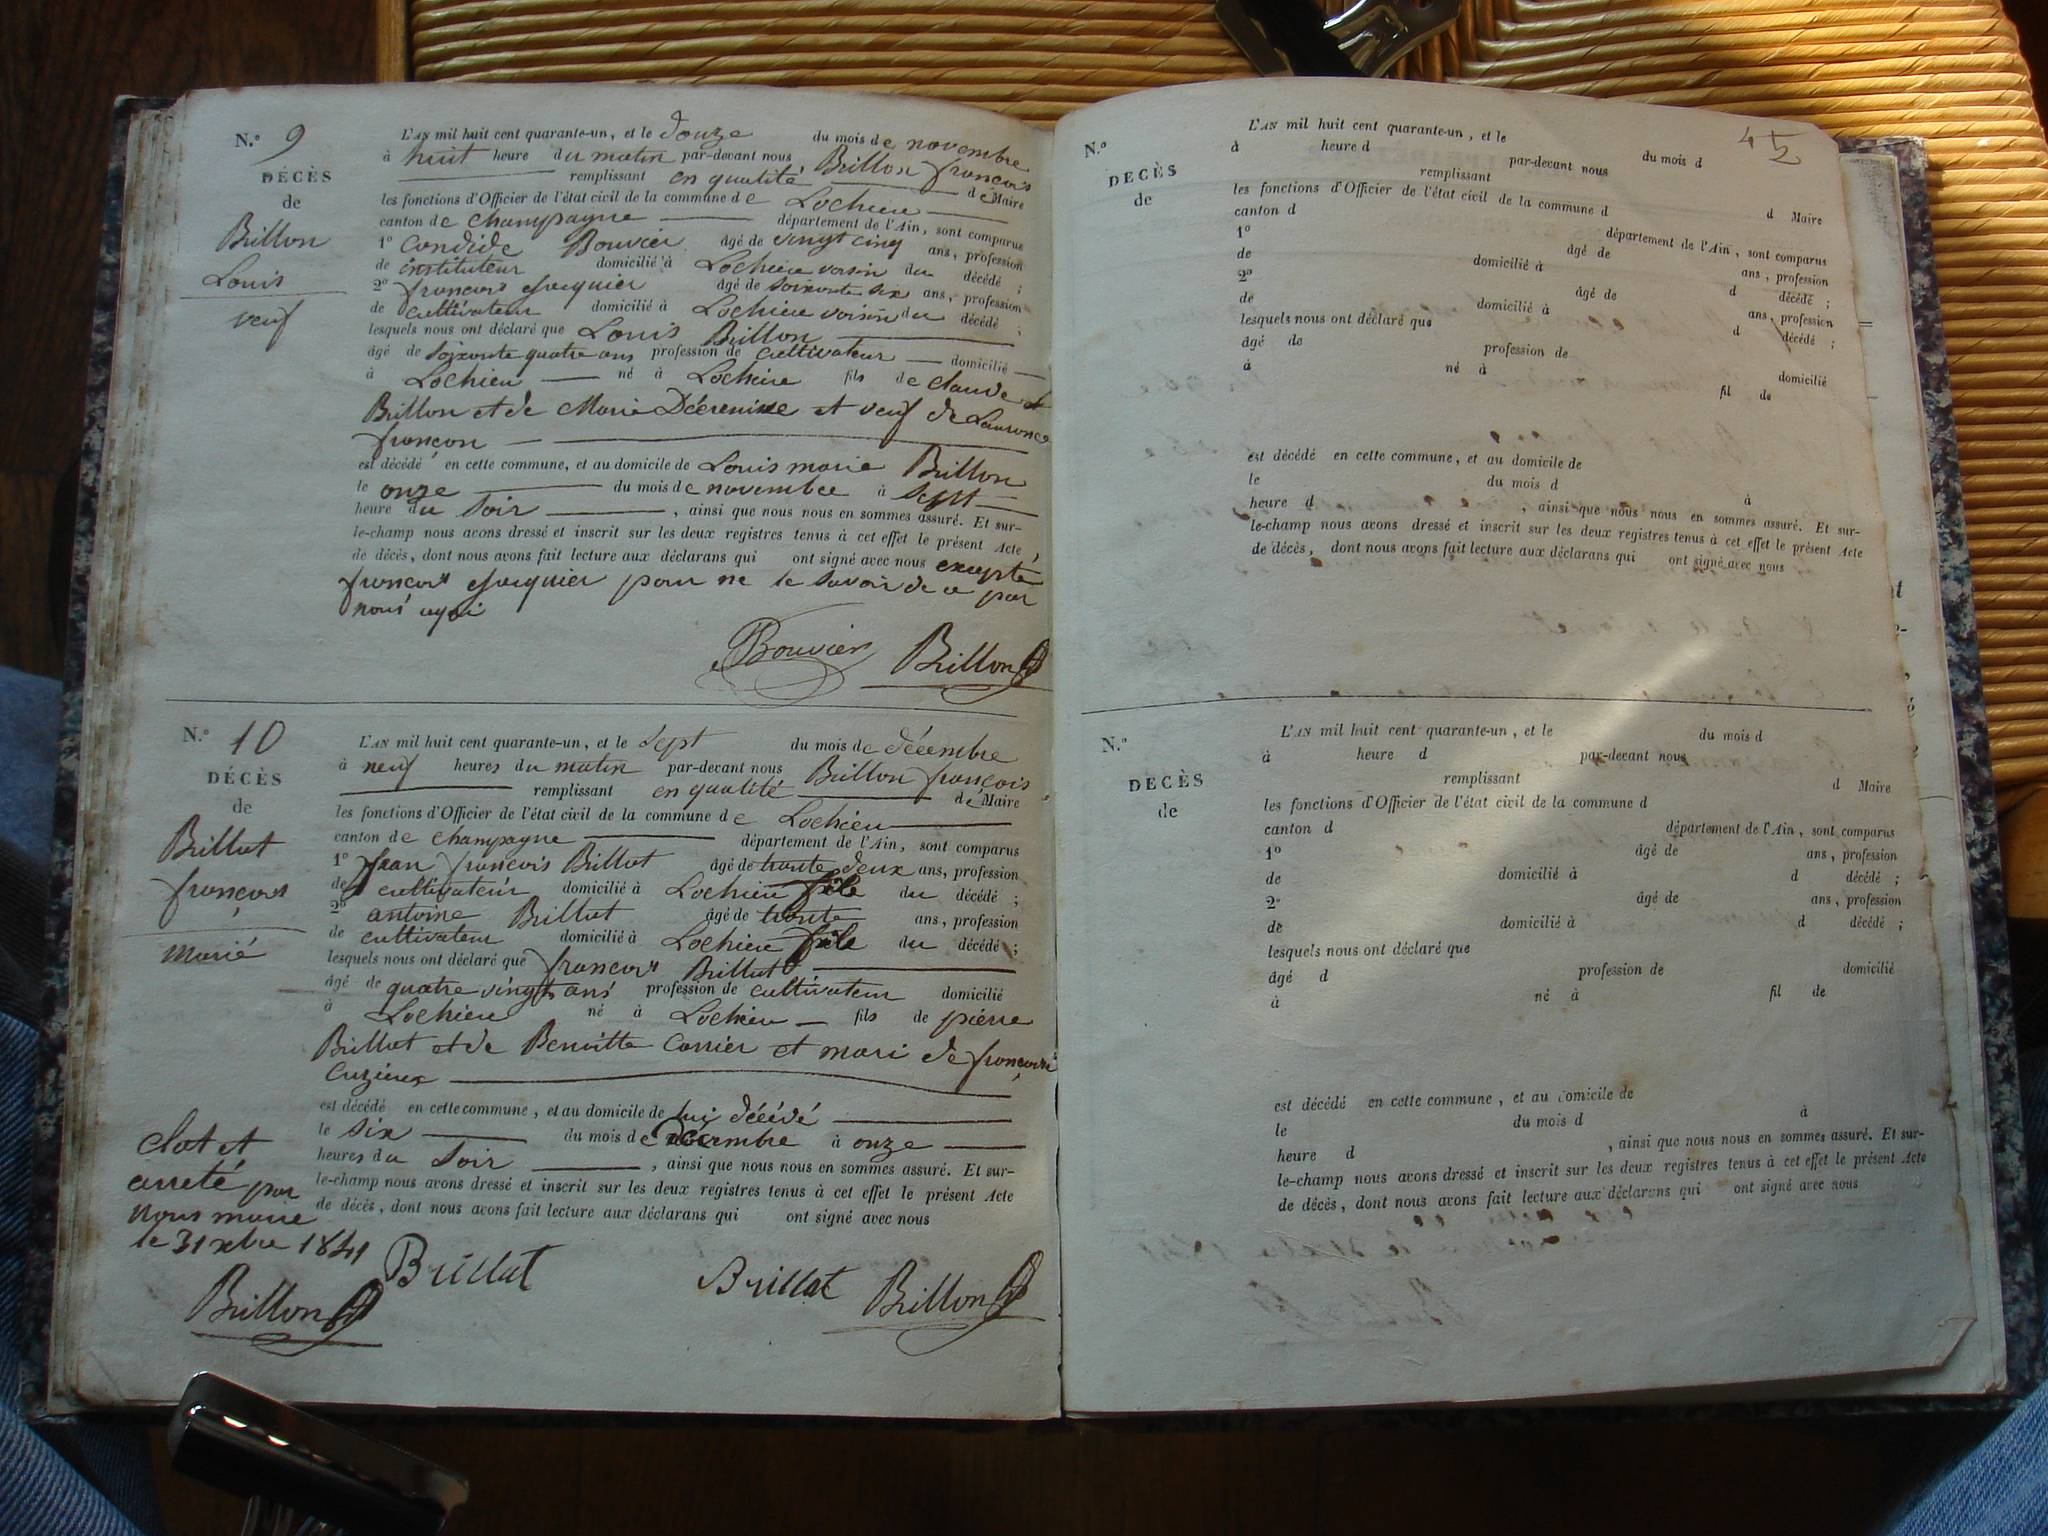 N.° 9
DÉCÈS
de
Brillon
Louis
veuf
L'AN mil huit cent quarante-un, et le douze du mois de novembre
à huit heure du matin par-devant nous Brillon françois
remplissant en qualité de Maire
les fonctions d'Officier de l'état civil de la commune de Lochieu
canton de champagne département de l'Ain, sont comparus
1° Candide Bouvier âgé de vingt cinq ans, profession
de instituteur domicilié à Lochieu voisin du décédé ;
2° françois Jacquier âgé de soixante six ans, profession
de cultivateur domicilié à Lochieu voisin du décédé ;
lesquels nous ont déclaré que Louis Brillon
âgé de soixante quatre ans profession de cultivateur domicilié
à Lochieu né à Lochieu fils de claude
Brillon et de Marie et veuf de Laurence
françon
est décédé en cette commune, et au domicile de Louis marie Brillon
le onze du mois de novembre à sept
heure du soir , ainsi que nous nous en sommes assuré. Et sur-
le-champ nous avons dressé et inscrit sur les deux registres tenus à cet effet le présent Acte
de décès, dont nous avons fait lecture aux déclarans qui ont signé avec nous excepté
françois Jacquier pour ne le savoir de ce par
nous
Bouvier Brillon
N.° 10
DÉCÈS
de
Brillat
françois
marié
L'AN mil huit cent quarante-un, et le sept du mois de décembre
à neuf heures du matin par-devant nous Brillon françois
remplissant en qualité de Maire
les fonctions d'Officier de l'état civil de la commune de Lochieu
canton de champagne département de l'Ain, sont comparus
1° jean françois Brillat âgé de trente deux ans, profession
de cultivateur domicilié à Lochieu fils du décédé ;
2° antoine Brillat âgé de trente ans, profession
de cultivateur domicilié à Lochieu fils du décédé ;
lesquels nous ont déclaré que françois Brillat
âgé de quatre vingts ans profession de cultivateur domicilié
à Lochieu né à Lochieu fils de pierre
Brillat et de Benoitte Carrier et mari de françoise
Cuzieux
est décédé en cette commune, et au domicile de lui décédé
le six du mois de décembre à onze
heures du soir , ainsi que nous nous en sommes assuré. Et sur-
le-champ nous avons dressé et inscrit sur les deux registres tenus à cet effet le présent Acte
de décès, dont nous avons fait lecture aux déclarans qui ont signé avec nous
Clot et
arreté par
nous maire
le 31 xbre 1841
Brillon Brillat Brillat Brillon
45
N.°
DECÈS
de
L'AN mil huit cent quarante-un, et le du mois d
à heure d par-devant nous
remplissant d Maire
les fonctions d'Officier de l'état civil de la commune d
canton d département de l'Ain, sont comparus
1° âgé de ans, profession
de domicilié à d décédé ;
2° âgé de ans, profession
de domicilié à d décédé ;
lesquels nous ont déclaré que
âgé de profession de domicilié
à né à fil de
est décédé en cette commune, et au domicile de
le du mois d à
heure d , ainsi que nous nous en sommes assuré. Et sur-
le-champ nous avons dressé et inscrit sur les deux registres tenus à cet effet le présent Acte
de décès, dont nous avons fait lecture aux déclarans qui ont signé avec nous
N.°
DECÈS
de
L'AN mil huit cent quarante-un, et le du mois d
à heure d par-devant nous
remplissant d Maire
les fonctions d'Officier de l'état civil de la commune d
canton d département de l'Ain, sont comparus
1° âgé de ans, profession
de domicilié à d décédé ;
2° âgé de ans, profession
de domicilié à d décédé ;
lesquels nous ont déclaré que
âgé d profession de domicilié
à né à fil de
est décédé en cette commune, et au domicile de
le du mois d à
heure d , ainsi que nous nous en sommes assuré. Et sur-
le-champ nous avons dressé et inscrit sur les deux registres tenus à cet effet le présent Acte
de décès, dont nous avons fait lecture aux déclarans qui ont signé avec nous